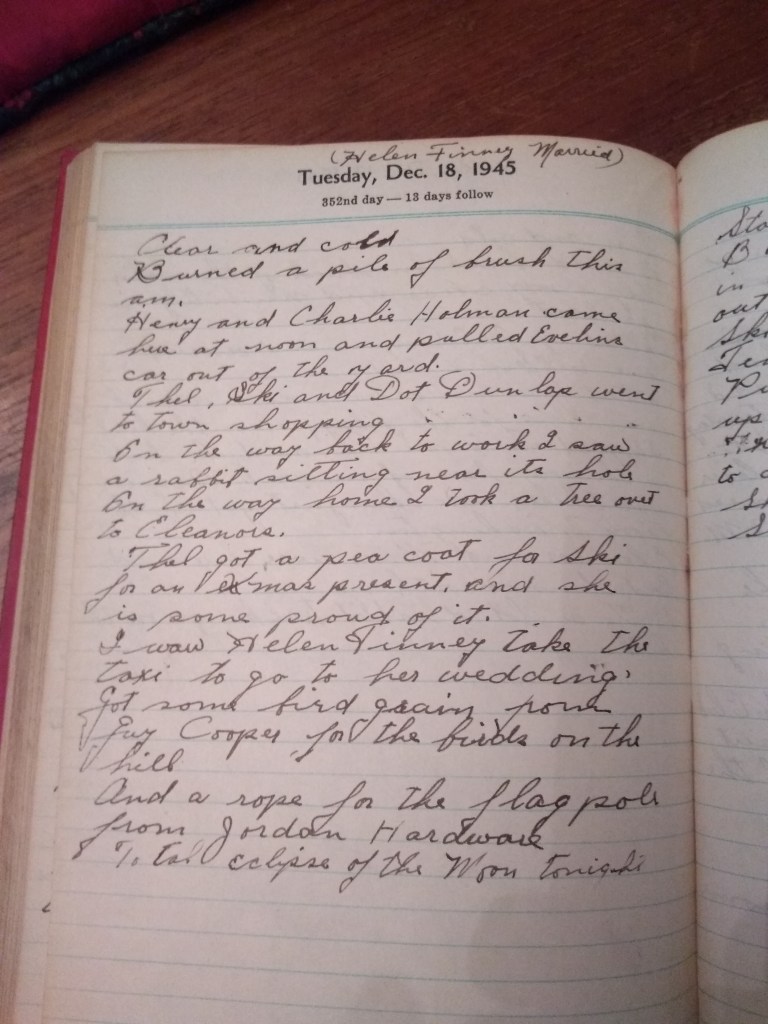 (Helen Finney Married)
Tuesday, Dec. 18, 1945
352nd day — 13 days follow
Clear and cold
Burned a pile of brush this
am.
Henry and Charlie Holman came
here at noon and pulled Evelins
car out of the yard.
Thel, Ski and Dot Dunlap went
to town shopping
On the way back to work I saw
a rabbit sitting near its hole
On the way home I took a tree over
to Eleanors.
Thel got a pea coat for Ski
for an Xmas present, and she
is some proud of it.
I saw Helen Finney take the
taxi to go to her wedding.
Got some bird grain from
Guy Cooper for the birds on the
hill
And a rope for the flag pole
from Jordan Hardware
Total eclipse of the Moon tonight
Sta
B
in
out
Ski
Pu
up
to